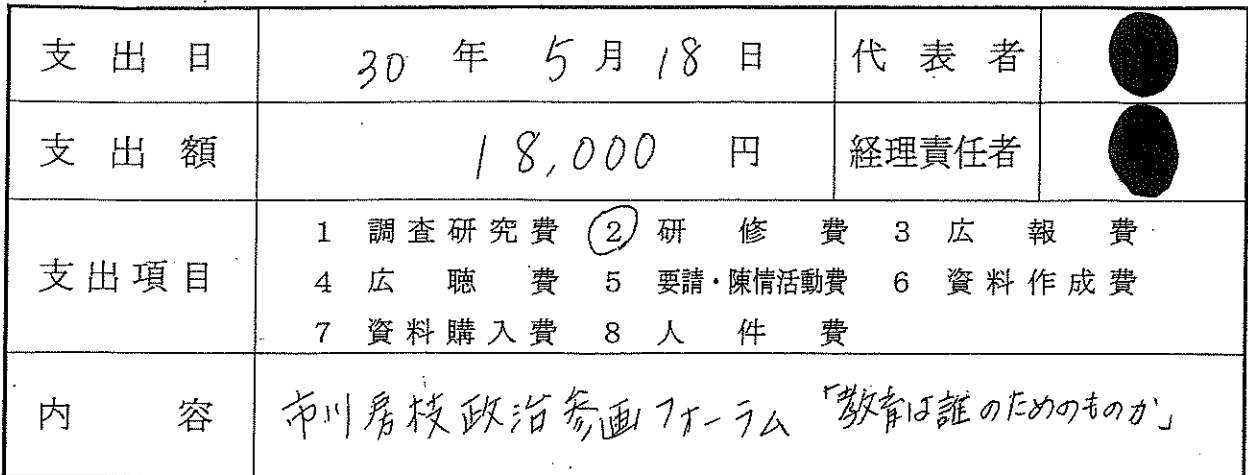 支出日 30年5月18日 代表者
支出額 18,000円 経理責任者
支出項目
1 調査研究費 2 研修費 3 広報費
4 広聴費 5 要請・陳情活動費 6 資料作成費
7 資料購入費 8 人件費
内容 市川房枝政治参画フォーラム 「教育は誰のためのものか」